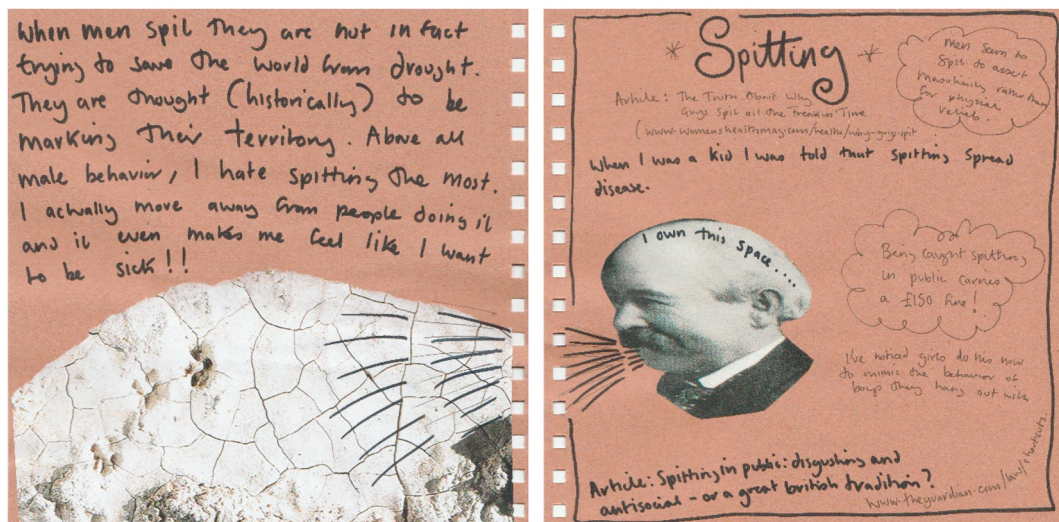 When men spit they are not in fact
trying to save the world from drought.
They are thought (historically) to be
marking their territory. Above all
male behavior, I hate spitting the most.
I actually move away from people doing it
and it even makes me feel like I want
to be sick!!
Spitting
Men seem to
spit to assert
masculinity rather than
for physical
relief.
Article: The Truth About Why
Guys Spit all the Freakin Time
(www.womenshealthmag.com/health/why-guys-spit
When I was a kid I was told that spitting spread
disease.
I own this space....
Being caught spitting
in public carries
a £150 fine!
I've noticed girls do this now
to mimic the behavior of
boys they hang out with
Article: Spitting in public: disgusting and
antisocial - or a great british tradition?
www.theguardian.com/law/shortcuts